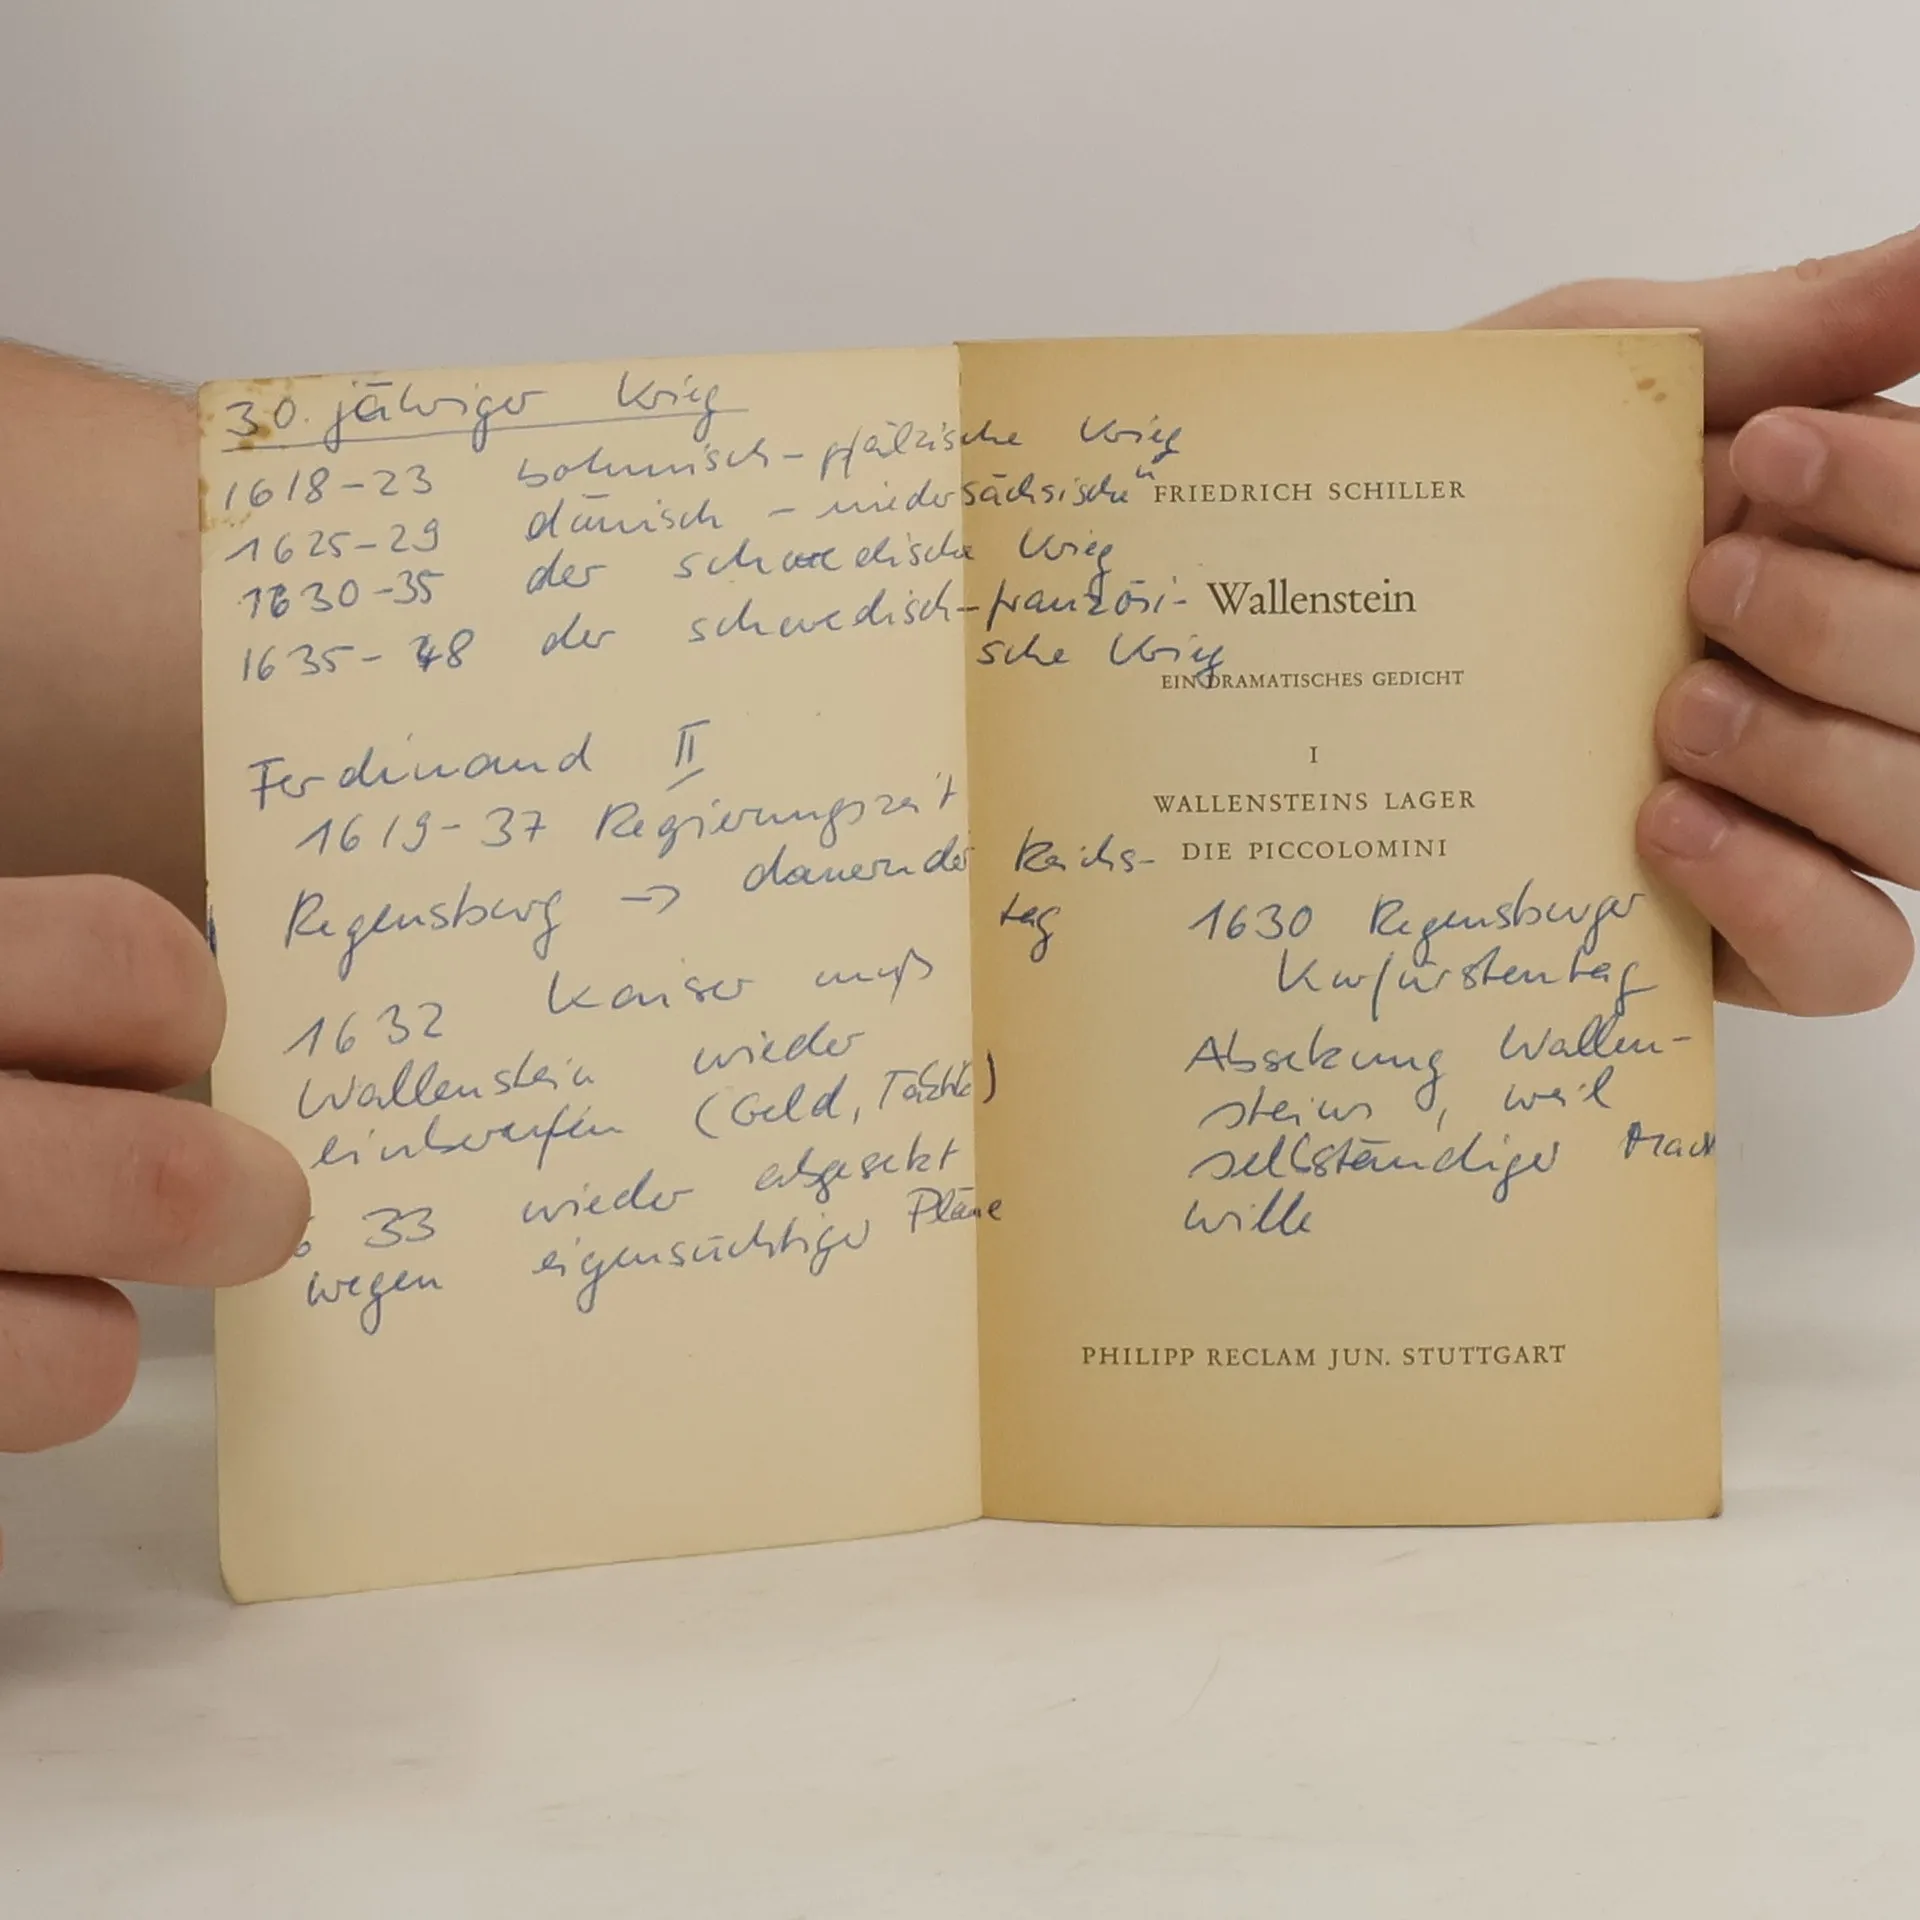 30. jähriger Krieg
1618-23 böhmisch-pfälzische Krieg
1625-29 dänisch - niedersächsische "
1630-35 der schwedische Krieg
1635-48 der schwedisch-französi-
sche Krieg
Ferdinand II
1619-37 Regierungszeit
Regensburg → dauernder Reichs-
tag
1632 Kaiser muß
Wallenstein wieder
einberufen (Geld, Taktik)
33 wieder abgesetzt
wegen eigensüchtiger Pläne
FRIEDRICH SCHILLER
Wallenstein
EIN DRAMATISCHES GEDICHT
I
WALLENSTEINS LAGER
DIE PICCOLOMINI
1630 Regensburger
Kurfürstentag
Absetzung Wallen-
steins, weil
selbständiger Macht
wille
PHILIPP RECLAM JUN. STUTTGART